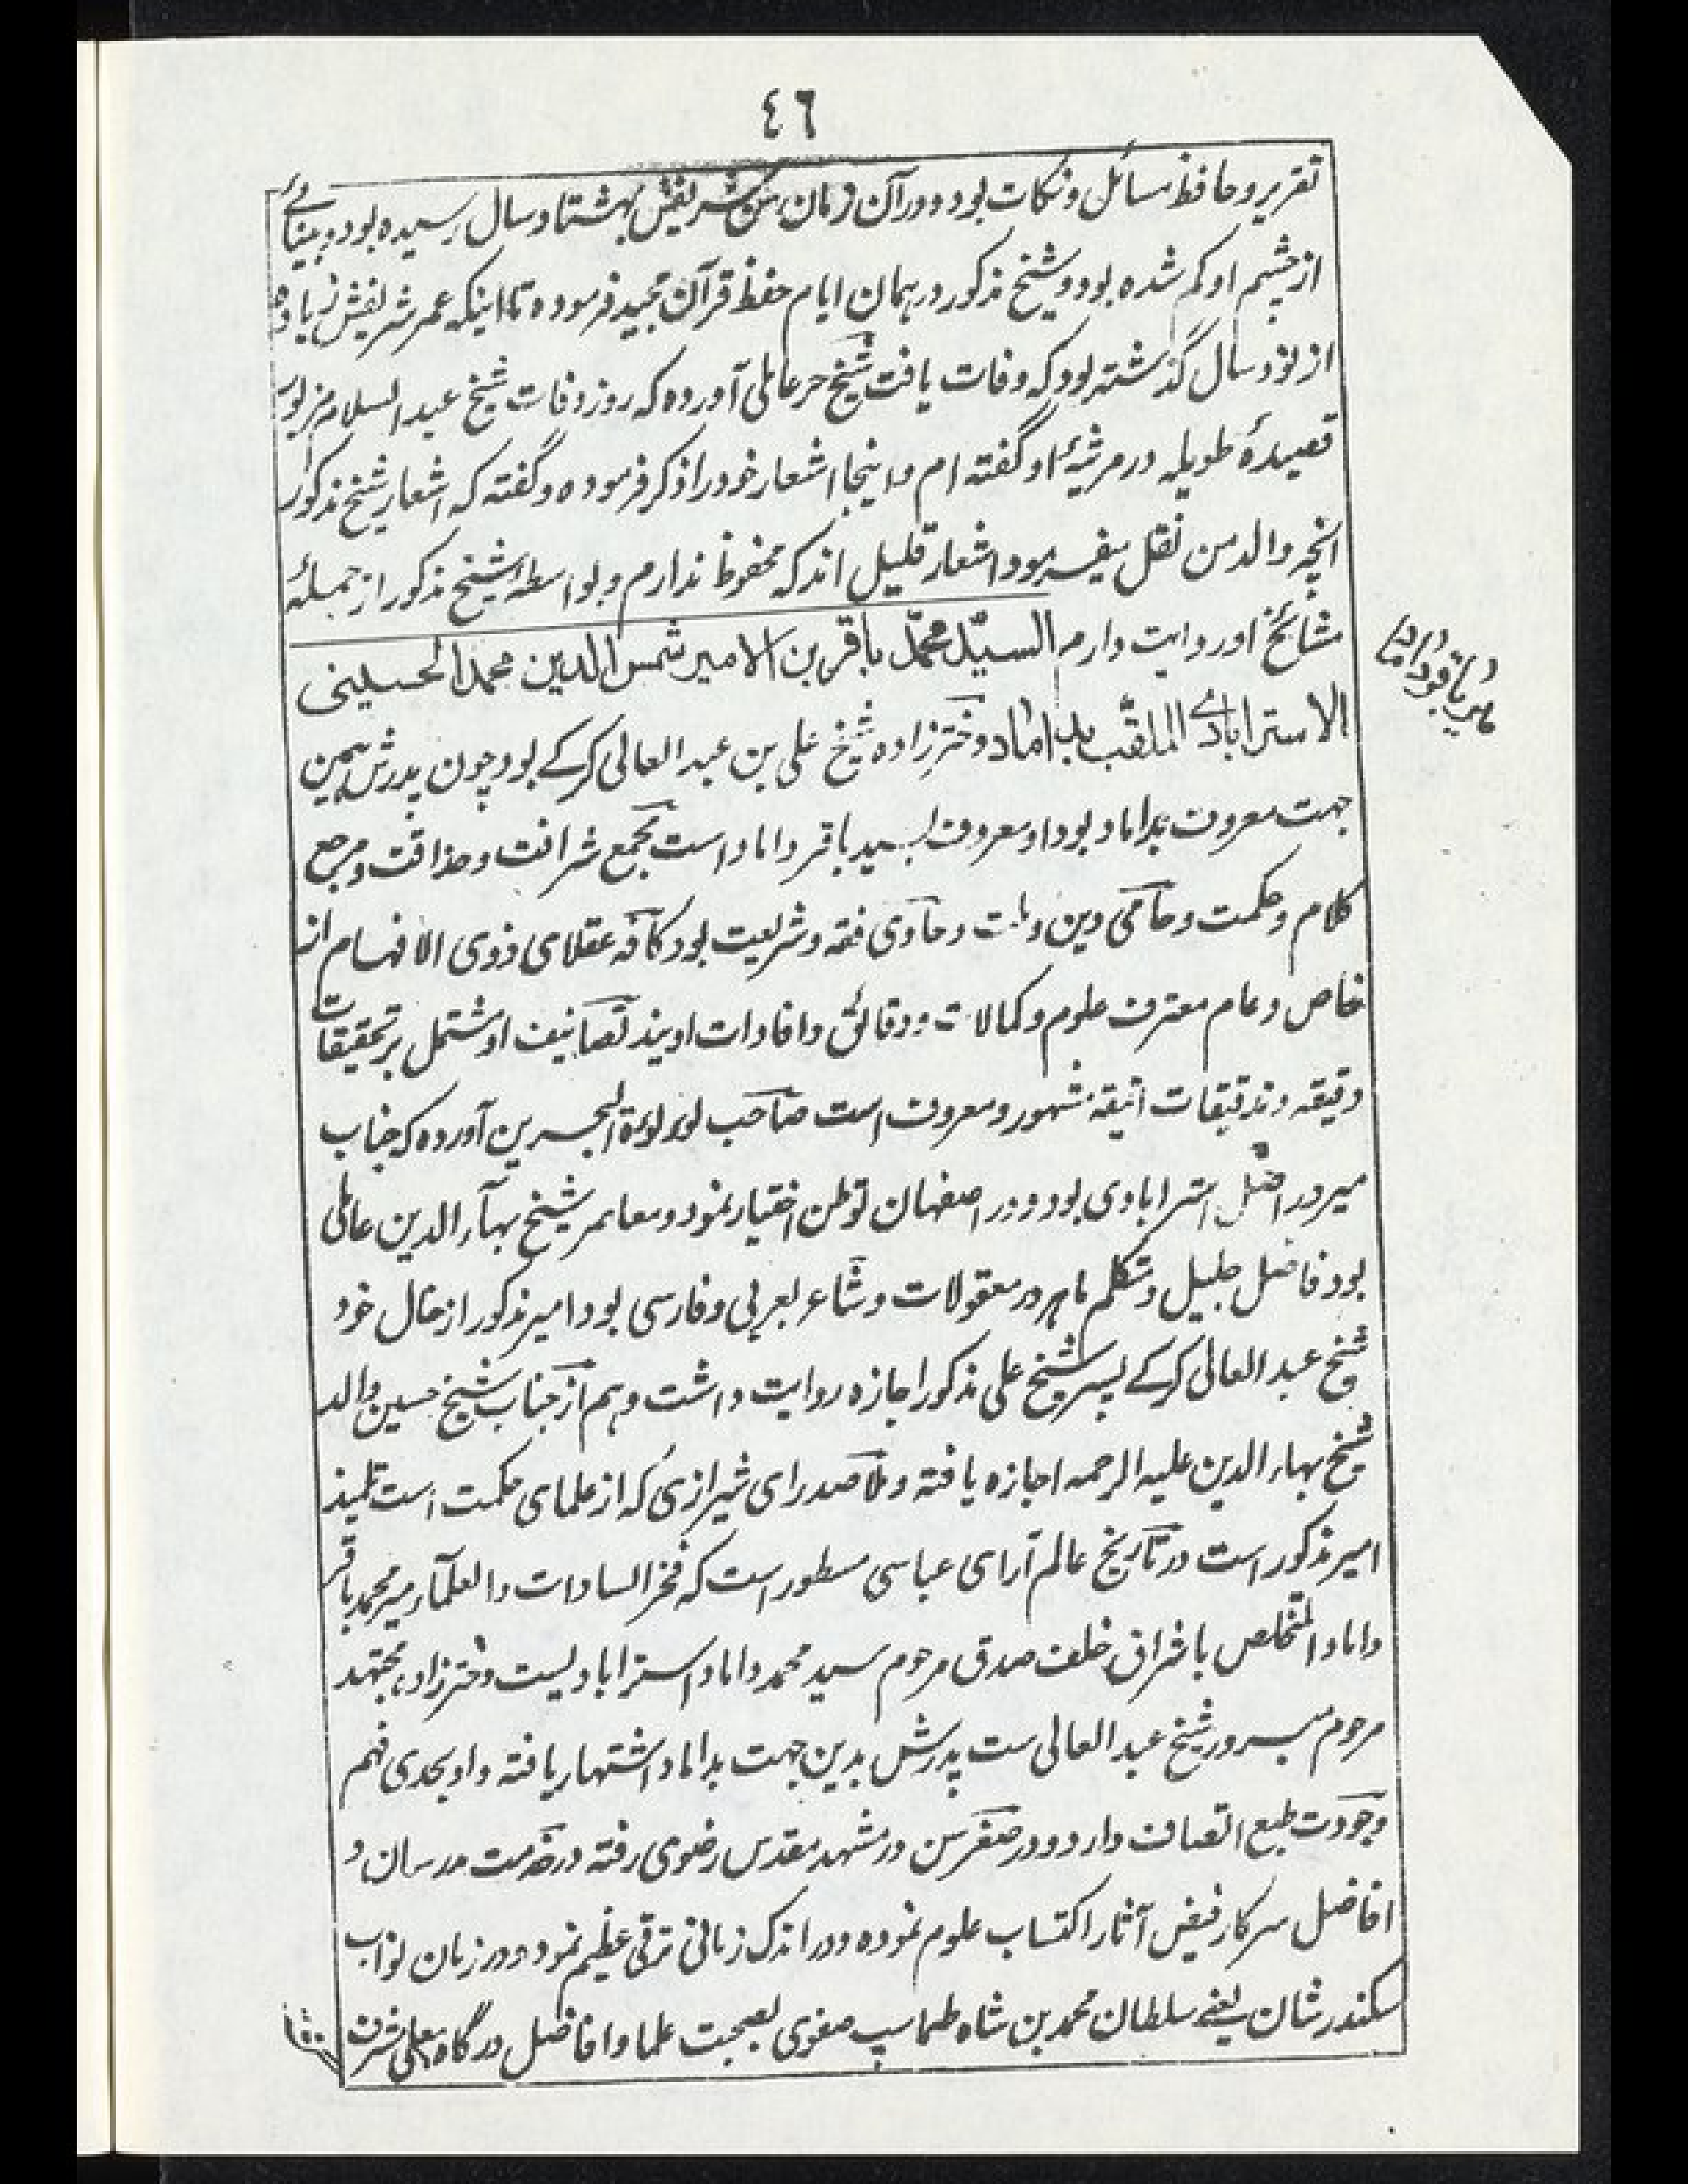 ٤٦
تقریر و حافظ مسائل و نکات بود و در آن زمان سن شریفش بهشتاد سال رسیده بود و بینائے
از چشم او کم شده بود و شیخ مذکور در همان ایام حفظ قرآن مجید فرموده تا اینکه عمر شریفش زیاده
از نود سال گذشته بود که وفات یافت شیخ حر عاملی آورده که روز وفات شیخ عبد السلام مزبور
قصیدهٔ طویله در مرثیهٔ او گفته ام و اینجا اشعار خود را ذکر فرموده و گفته که اشعار شیخ مذکور
آنچه والد من نقل میفرمود اشعار قلیل اند که محفوظ ندارم و بواسطهٔ شیخ مذکور از جملهٔ
مشائخ او روایت دارم السیّد محمّد باقر بن الامیر شمس الدین محمد الحسینی
میر باقر داماد
الاسترابادے الملقّب بداماد دخترزاده شیخ علی بن عبد العالی کرکے بود چون پدرش بهمین
جهت معروف بداماد بود او معروف بسید باقر داماد است مجمع شرافت و حذاقت و مرجع
کلام و حکمت و حامی دین و ملت و حاوی فقه و شریعت بود کافه عقلای ذوی الافهام از
خاص و عام معترف علوم و کمالات و دقائق و افادات اویند تصانیف او مشتمل بر تحقیقات
دقیقه و تدقیقات انیقه مشهور و معروف است صاحب لؤلؤة البحرین آورده که جناب
میر در اصل استرابادی بود و در اصفهان توطن اختیار نمود و معاصر شیخ بهآء الدین عاملی
بود فاضل جلیل و متکلم ماهر در معقولات و شاعر بعربی و فارسی بود امیر مذکور از خال خود
شیخ عبد العالی کرکے پسر شیخ علی مذکور اجازه روایت داشت و هم از جناب شیخ حسین والد
شیخ بهاء الدین علیه الرحمه اجازه یافته و ملا صدرای شیرازی که از علمای حکمت است تلمیذ
امیر مذکور است در تاریخ عالم آرای عباسی مسطور است که فخر السادات والعلمآء میر محمد باقر
داماد المتخلص باشراق خلف صدق مرحوم سید محمد داماد استرابادیست دخترزاده مجتهد
مرحوم مبرور شیخ عبد العالی ست پدرش بدین جهت بداماد اشتهار یافته و او بحدی فهم
وجودت طبع اتصاف دارد و در صغر سن در مشهد مقدس رضوی رفته در خدمت مدرسان و
افاضل سرکار فیض آثار اکتساب علوم نموده و در اندک زمانی ترقی عظیم نمود و در زمان نواب
سکندر شان یعنے سلطان محمد بن شاه طهماسپ صفوی بصحبت علما و افاضل درگاه معلی مشرف